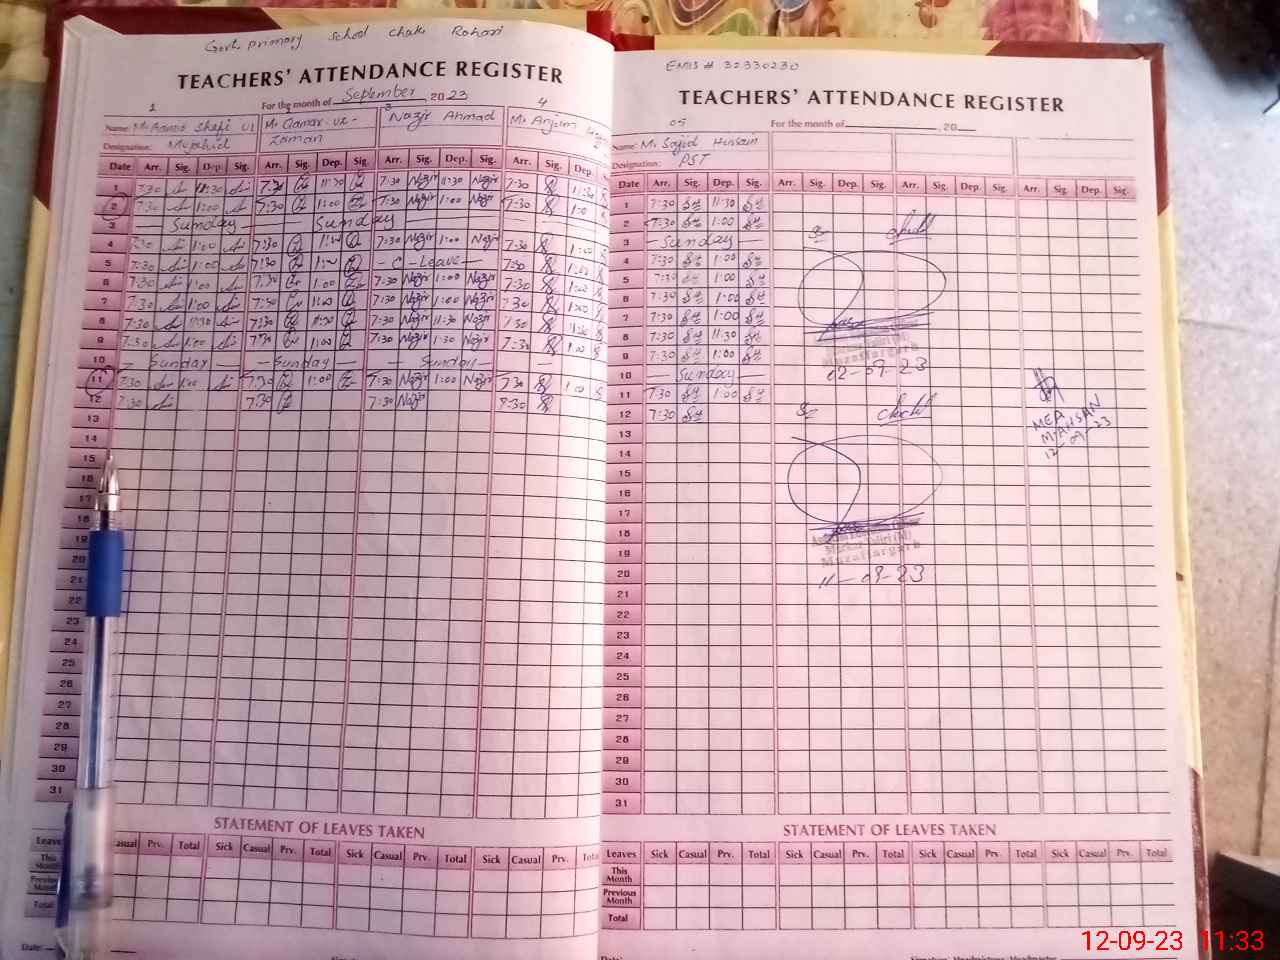 Govt. primary school chak Rohari
TEACHERS' ATTENDANCE REGISTER
For the month of September, 2023
1 3 4
Name: M. Aamir Shafi ul M. Qamar-uz- Nazir Ahmad M. Anjum
Designation: Mujahid Zaman
Date Arr. Sig. Dep. Sig. Arr. Sig. Dep. Sig. Arr. Sig. Dep. Sig. Arr. Sig. Dep. Sig.
1 7:30 11:30 7:30 11:30 7:30 Nazir 11:30 Nazir 7:30 11:30
2 7:30 1:00 7:30 1:00 7:30 Nazir 1:00 Nazir 7:30 1:0
3 — Sunday — Sunday —
4 7:30 1:00 7:30 1:00 7:30 Nazir 1:00 Nazir 7:30 1:00
5 7:30 1:00 7:30 1:00 - C - Leave - 7:30 1:00
6 7:30 1:00 7:30 1:00 7:30 Nazir 1:00 Nazir 7:30 1:00
7 7:30 1:00 7:30 1:00 7:30 Nazir 1:00 Nazir 7:30 1:00
8 7:30 11:30 7:30 11:30 7:30 Nazir 11:30 Nazir 7:30 11:30
9 7:30 1:00 7:30 1:00 7:30 Nazir 1:30 Nazir 7:30 1:00
10 — Sunday — Sunday — Sunday —
11 7:30 1:00 7:30 1:00 7:30 Nazir 1:00 Nazir 7:30 1:00
12 7:30 7:30 7:30 Nazir 7:30
13
14
15
16
17
18
19
20
21
22
23
24
25
26
27
28
29
30
31
STATEMENT OF LEAVES TAKEN
Leaves Casual Prv. Total Sick Casual Prv. Total Sick Casual Prv. Total Sick Casual Prv. Total
This Month
Previous Month
Total
Date:
EMIS # 32330230
TEACHERS' ATTENDANCE REGISTER
05 For the month of , 20
Name: M. Sajid Hussain
Designation: PST
Date Arr. Sig. Dep. Sig. Arr. Sig. Dep. Sig. Arr. Sig. Dep. Sig. Arr. Sig. Dep. Sig.
1 7:30 11:30
2 7:30 1:00
3 — Sunday —
4 7:30 1:00
5 7:30 1:00
6 7:30 1:00
7 7:30 1:00
8 7:30 11:30
9 7:30 1:00
10 — Sunday —
11 7:30 1:00
12 7:30
13
14
15
16
17
18
19
20
21
22
23
24
25
26
27
28
29
30
31
Muzaffargarh
02-09-23
MEA
M. AHSAN
12-09-23
Muzaffargarh
11-09-23
STATEMENT OF LEAVES TAKEN
Leaves Sick Casual Prv. Total Sick Casual Prv. Total Sick Casual Prv. Total Sick Casual Prv. Total
This Month
Previous Month
Total
12-09-23 11:33